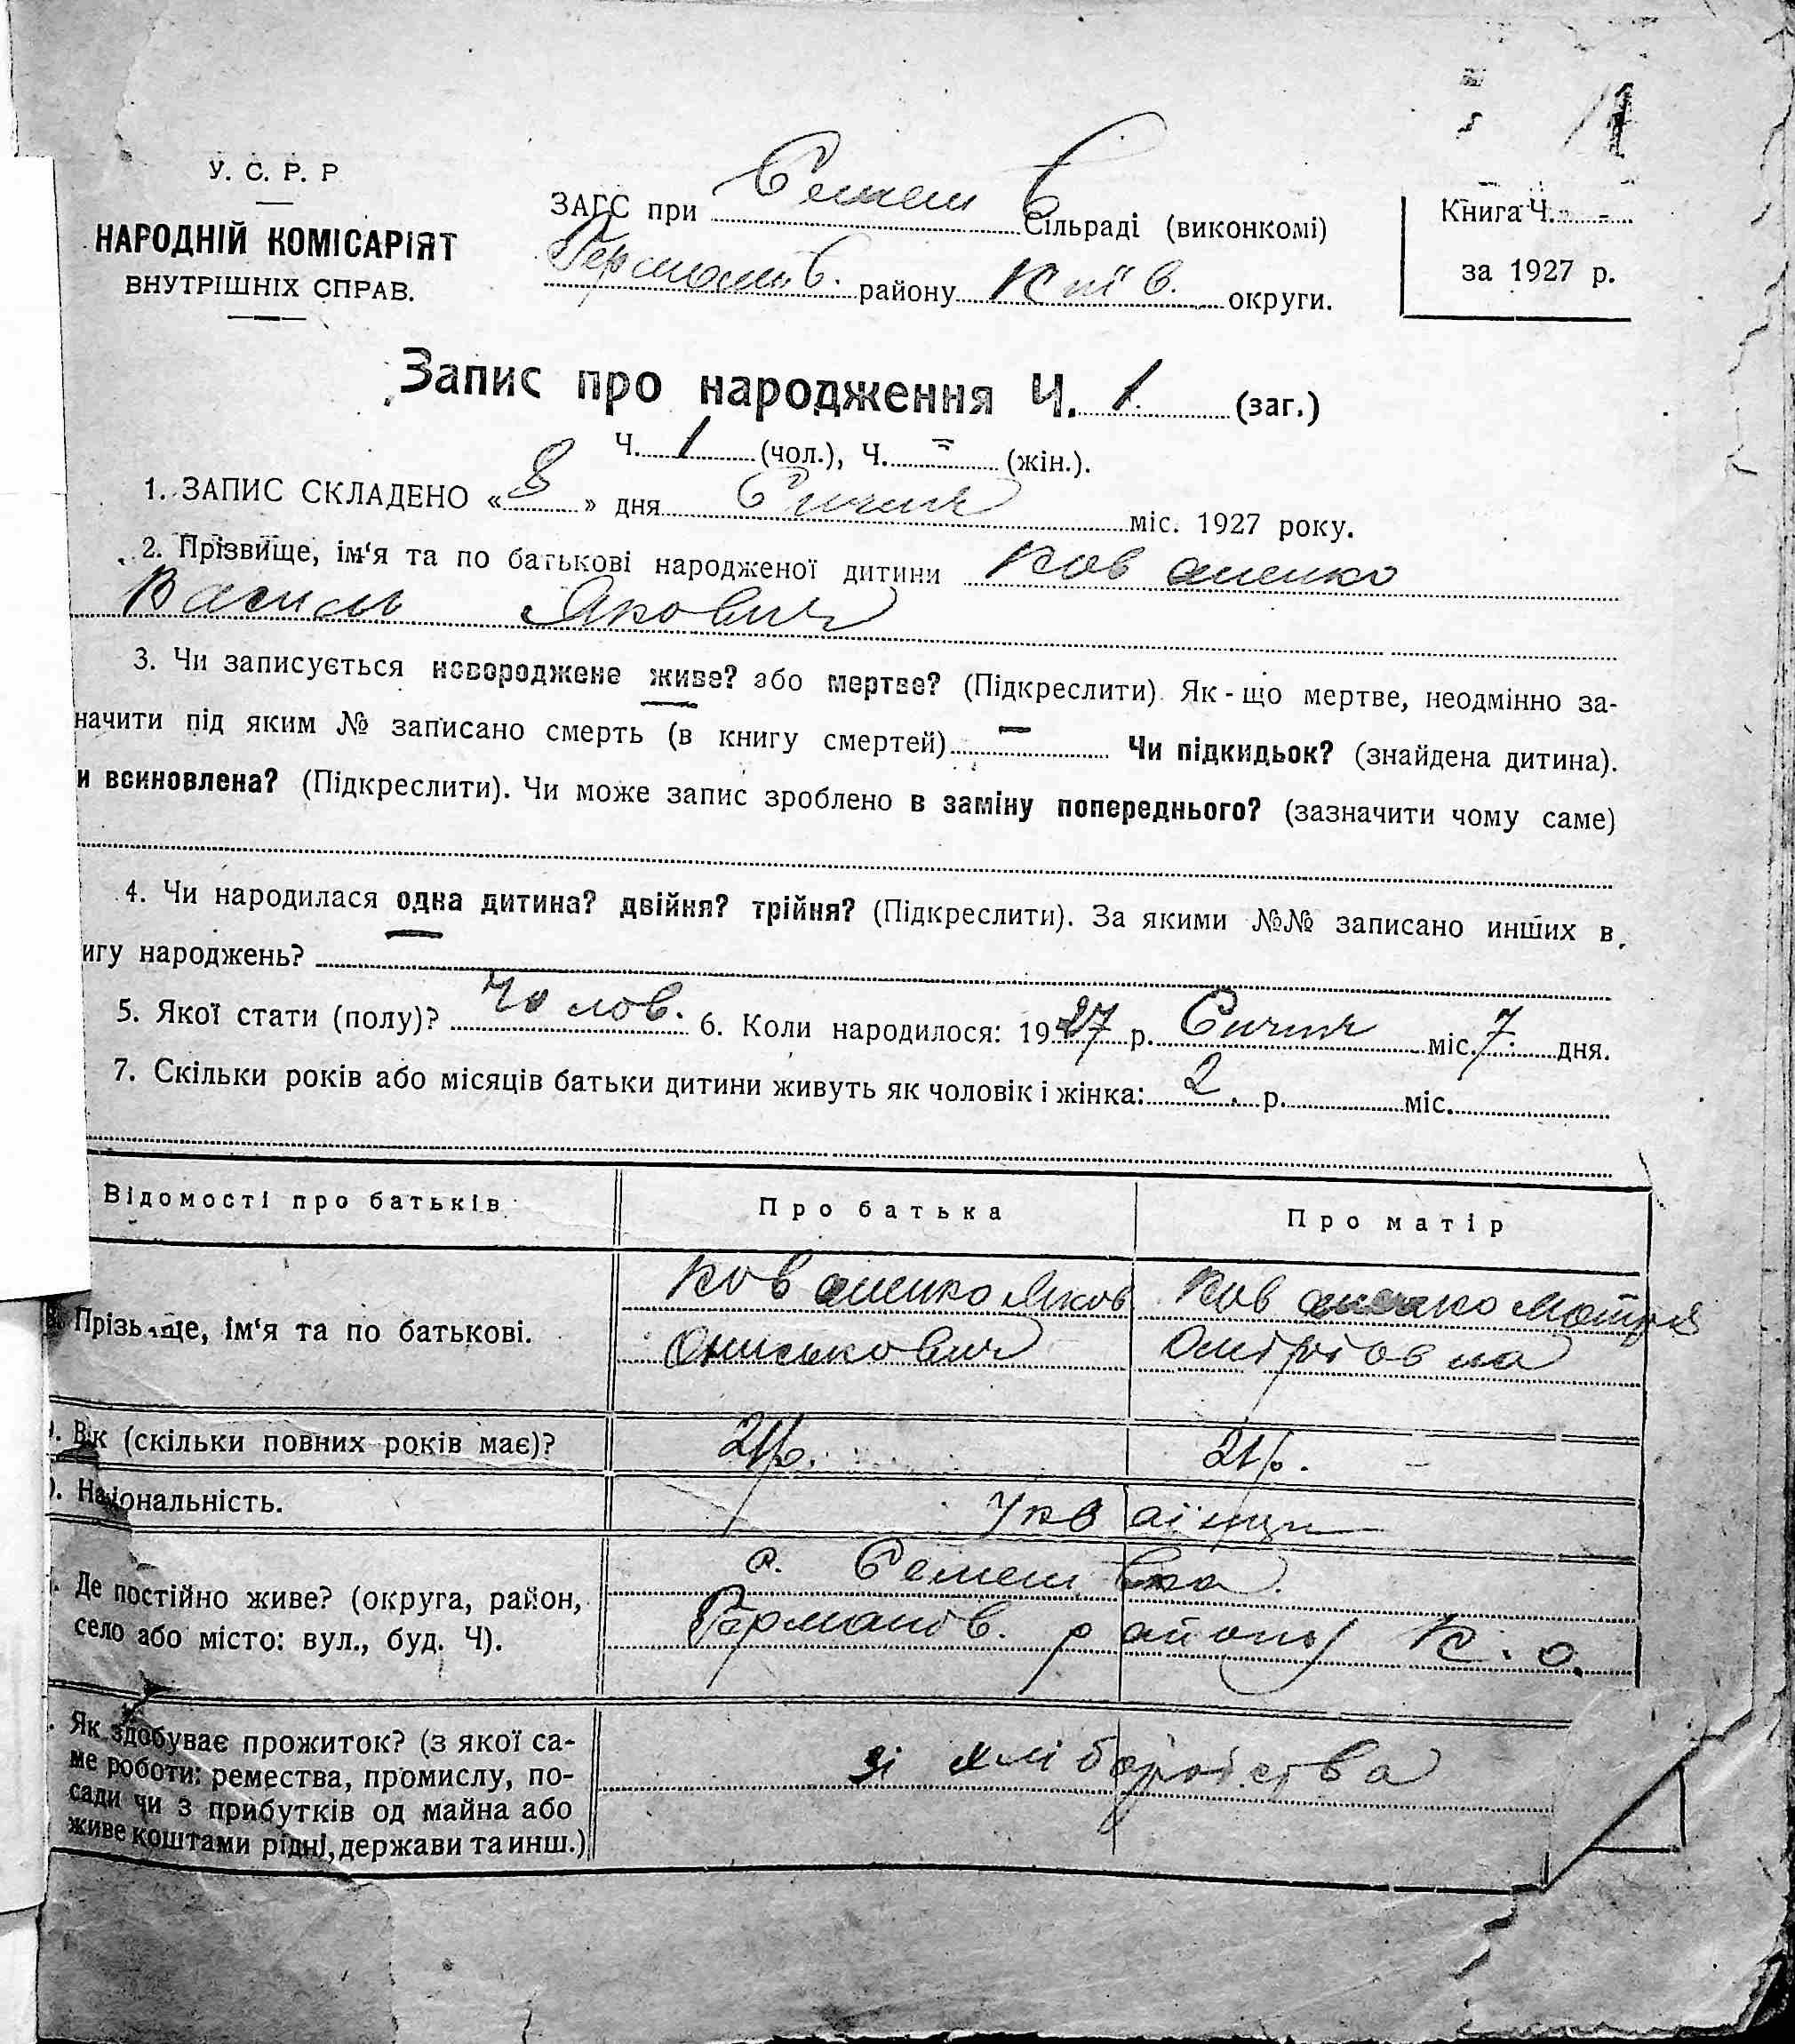 1
У. С. Р. Р
НАРОДНІЙ КОМІСАРІЯТ
ВНУТРІШНІХ СПРАВ.
ЗАГС при Семен Сільраді (виконкомі)
Германів. району Київ. округи.
Книга Ч. -
за 1927 р.
Запис про народження Ч. 1 (заг.)
Ч. 1 (чол.), Ч. = (жін.).
1. ЗАПИС СКЛАДЕНО « 8 » дня Січня міс. 1927 року.
2. Прізвище, ім‘я та по батькові народженої дитини Коваленко
Василь Якович
3. Чи записується новороджене живе? або мертве? (Підкреслити). Як-що мертве, неодмінно за-
начити під яким № записано смерть (в книгу смертей) — Чи підкидьок? (знайдена дитина).
и всиновлена? (Підкреслити). Чи може запис зроблено в заміну попереднього? (зазначити чому саме)
4. Чи народилася одна дитина? двійня? трійня? (Підкреслити). За якими №№ записано инших в
игу народжень?
5. Якої стати (полу)? Чолов. 6. Коли народилося: 1927 р. Січня міс. 7 дня.
7. Скільки років або місяців батьки дитини живуть як чоловік і жінка: 2. р. міс.
Відомості про батьків Про батька Про матір
Прізвище, ім‘я та по батькові. Коваленко Яков Коваленко Мотря
Онискович Омітровна
. Вік (скільки повних років має)? 21 р. 21 р.
. Національність. Українци
. Де постійно живе? (округа, район,
село або місто: вул., буд. Ч).
с. Семенівка.
Германов. району К. о.
. Як здобуває прожиток? (з якої са-
ме роботи: ремества, промислу, по-
сади чи з прибутків од майна або
живе коштами рідні, держави та инш.)
зі хліборобства